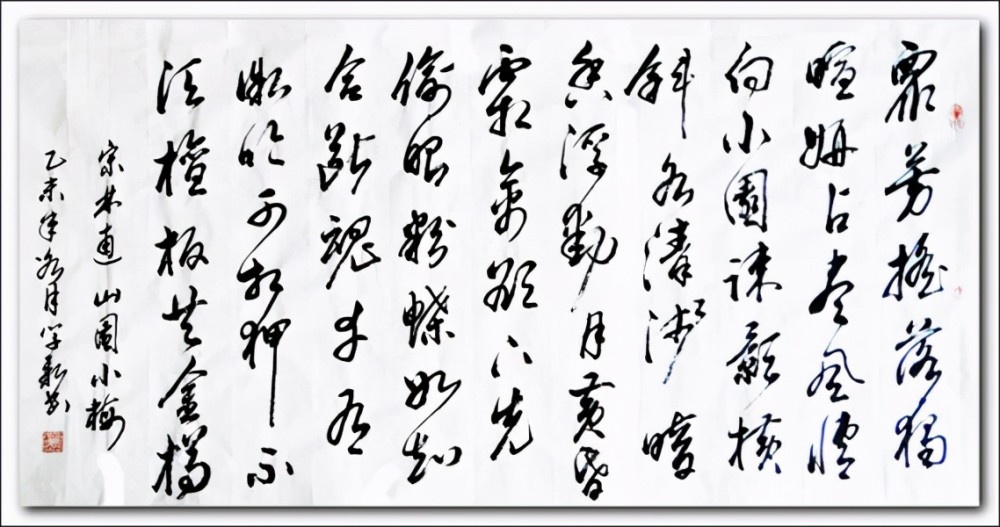 眾芳搖落獨
暄妍占尽風情
向小園疎影橫
斜水清淺暗
香浮動月黃昏
霜禽欲下先
偷眼粉蝶如知
合斷魂幸有
微吟可相狎不
須檀板共金樽
宋林逋山園小梅
乙未年月学书